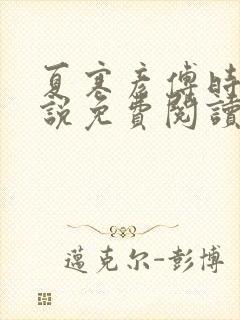 夏寒彦傅時
說免費閱讀
邁克尔-彭博